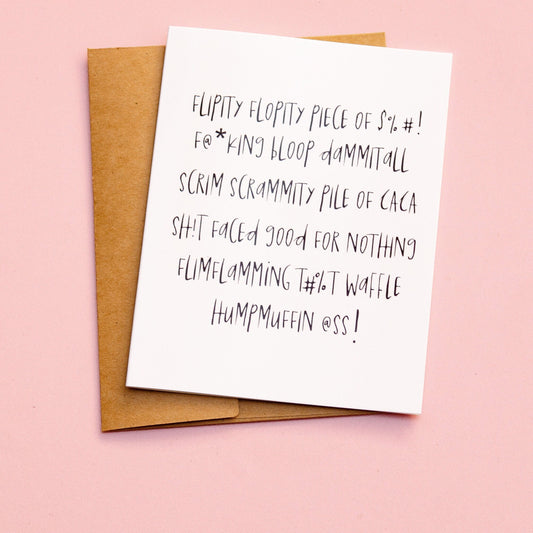 FLIPITY FLOPITY PIECE OF S%#!
F@*KING bLOOP dAMMITALL
SCRIM SCRAMMITY PILE OF CACA
SH!T FACEd gOOd FOR NOTHING
FLIMFLAMMING T#%T WAFFLE
HUMPMUFFIN @SS!